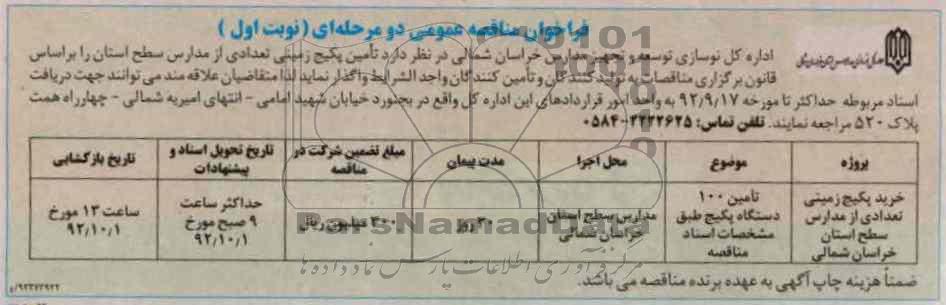 فراخوان مناقصه عمومی دو مرحله‌ای (نوبت اول)
اداره کل نوسازی توسعه و تجهیز مدارس خراسان شمالی در نظر دارد تأمین پکیج زمینی تعدادی از مدارس سطح استان را براساس
قانون برگزاری مناقصات به تولید کنندگان و تأمین کنندگان واجد الشرایط واگذار نماید لذا متقاضیان علاقه مند می توانند جهت دریافت
اسناد مربوطه حداکثر تا مورخه ۹۲/۹/۱۷ به واحد امور قراردادهای این اداره کل واقع در بجنورد خیابان شهید امامی - انتهای امیریه شمالی - چهارراه همت
پلاک ۵۲۰ مراجعه نمایند. تلفن تماس: ۲۲۲۲۶۲۵-۰۵۸۴
پروژه موضوع محل اجرا مدت پیمان مبلغ تضمین شرکت در مناقصه تاریخ تحویل اسناد و پیشنهادات تاریخ بازگشایی
خرید پکیج زمینی تعدادی از مدارس سطح استان خراسان شمالی تأمین ۱۰۰ دستگاه پکیج طبق مشخصات اسناد مناقصه مدارس سطح استان خراسان شمالی ۳۰ روز ۳۰۰ میلیون ریال حداکثر ساعت ۹ صبح مورخ ۹۲/۱۰/۱ ساعت ۱۳ مورخ ۹۲/۱۰/۱
ضمناً هزینه چاپ آگهی به عهده برنده مناقصه می باشد.
۹۲۲۷۲۹۲۲/و
ParsNamadData
مرکز فرآوری اطلاعات پارس نماد داده ها